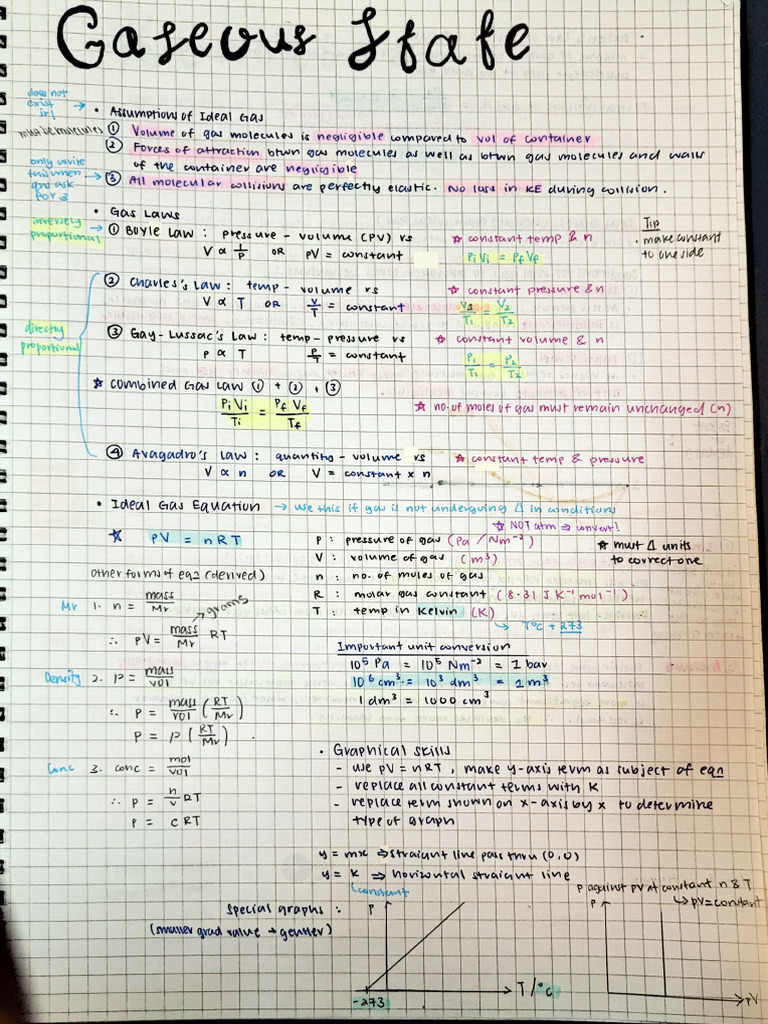 Gaseous State
does not
exist
irl
• Assumptions of Ideal Gas
must be molecules
① Volume of gas molecules is negligible compared to vol of container
② Forces of attraction btwn gas molecules as well as btwn gas molecules and walls
of the container are negligible
only write
this when
qns ask
for 3
③ All molecular collisions are perfectly elastic. No loss in KE during collision.
• Gas Laws
inversely
proportional
① Boyle Law : pressure - volume (PV) rs
☆ constant temp & n
V ∝ 1/P OR PV = constant
PiVi = PfVf
Tip
• make constant
to one side
② Charles's Law : temp - volume rs
☆ constant pressure & n
V ∝ T OR V/T = constant
V1/T1 = V2/T2
directly
proportional
③ Gay-Lussac's Law : temp-pressure rs
☆ constant volume & n
P ∝ T P/T = constant
P1/T1 = P2/T2
☆ combined Gas Law ① + ② + ③
PiVi/Ti = PfVf/Tf
☆ no. of moles of gas must remain unchanged (n)
④ Avagadro's Law : quantity - volume rs
☆ constant temp & pressure
V ∝ n OR V = constant x n
• Ideal Gas Equation → use this if gas is not undergoing Δ in conditions
☆ NOT atm ⇒ convert!
☆ PV = nRT
P : pressure of gas (Pa / Nm⁻²)
V : volume of gas (m³)
n : no. of moles of gas
R : molar gas constant (8.31 J K⁻¹ mol⁻¹)
T : temp in Kelvin (K)
T°C + 273
☆ must Δ units
to correct one
other forms of eqn (derived)
Mr 1. n = mass/Mr
grams
∴ PV = mass/Mr RT
Important unit conversion
10⁵ Pa = 10⁵ Nm⁻² = 1 bar
10⁶ cm³ = 10³ dm³ = 1 m³
1 dm³ = 1000 cm³
Density 2. ρ = mass/vol
∴ P = mass/vol (RT/Mr)
P = ρ (RT/Mr)
Conc 3. conc = mol/vol
∴ P = n/v RT
P = cRT
• Graphical skills
- use PV = nRT , make y-axis term as subject of eqn
- replace all constant terms with K
- replace term shown on x-axis by x to determine
type of graph
y = mx ⇒ straight line pass thru (0,0)
y = K ⇒ horizontal straight line
constant
special graphs :
(smaller grad value → gentler)
P
T/°C
-273
P against PV at constant n & T
→ PV = constant
P
PV